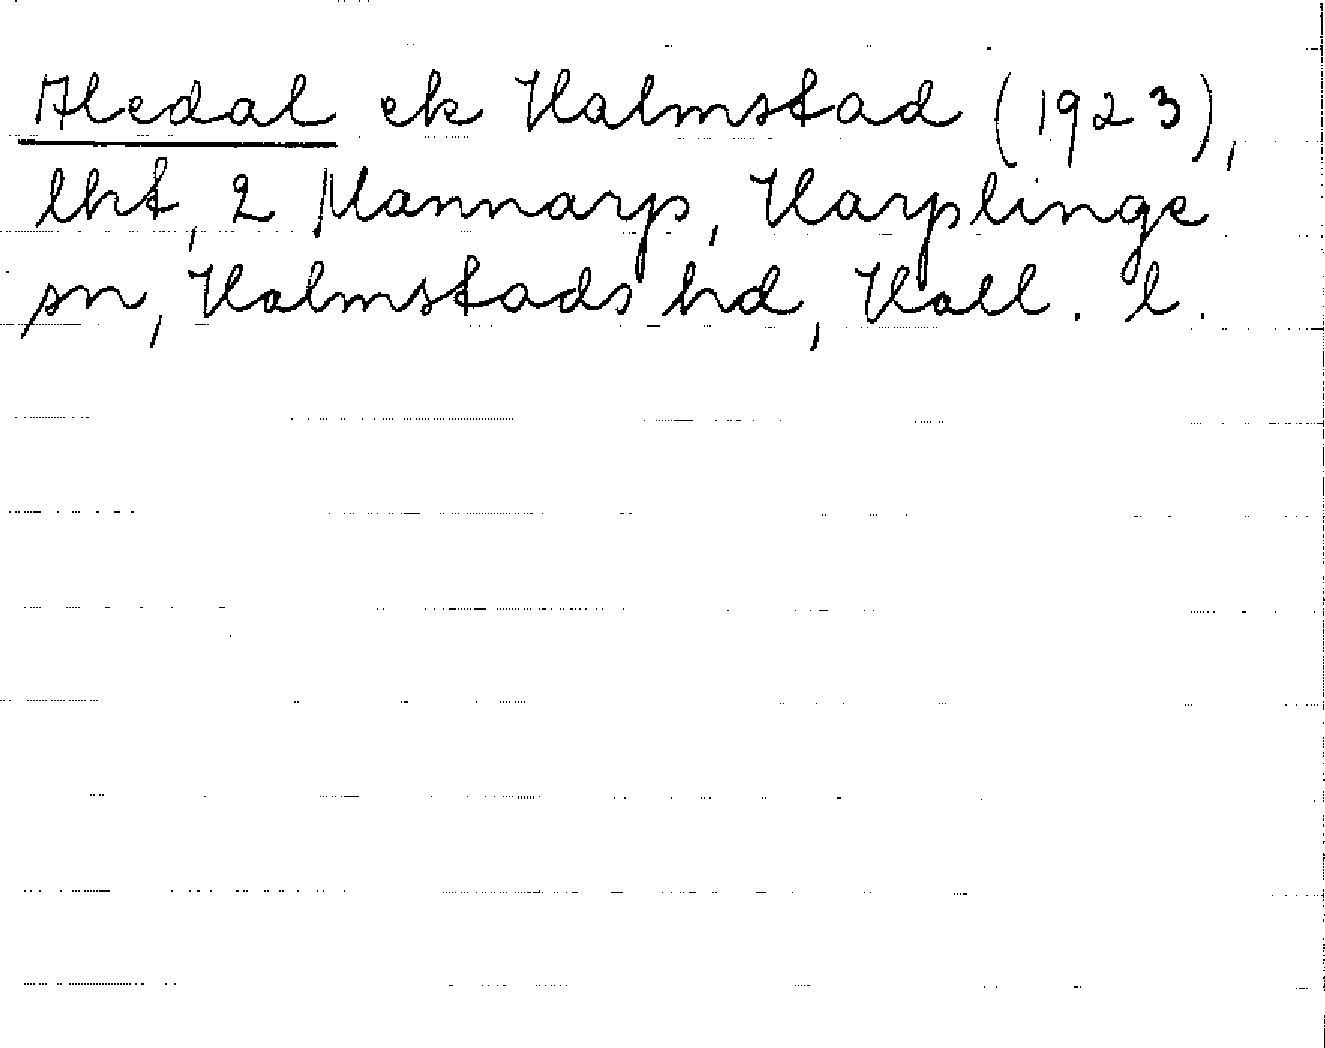 Aledal ek Halmstad (1923),
lht, 2 Mannarp, Harplinge
sn, Halmstads hd, Hall. l.